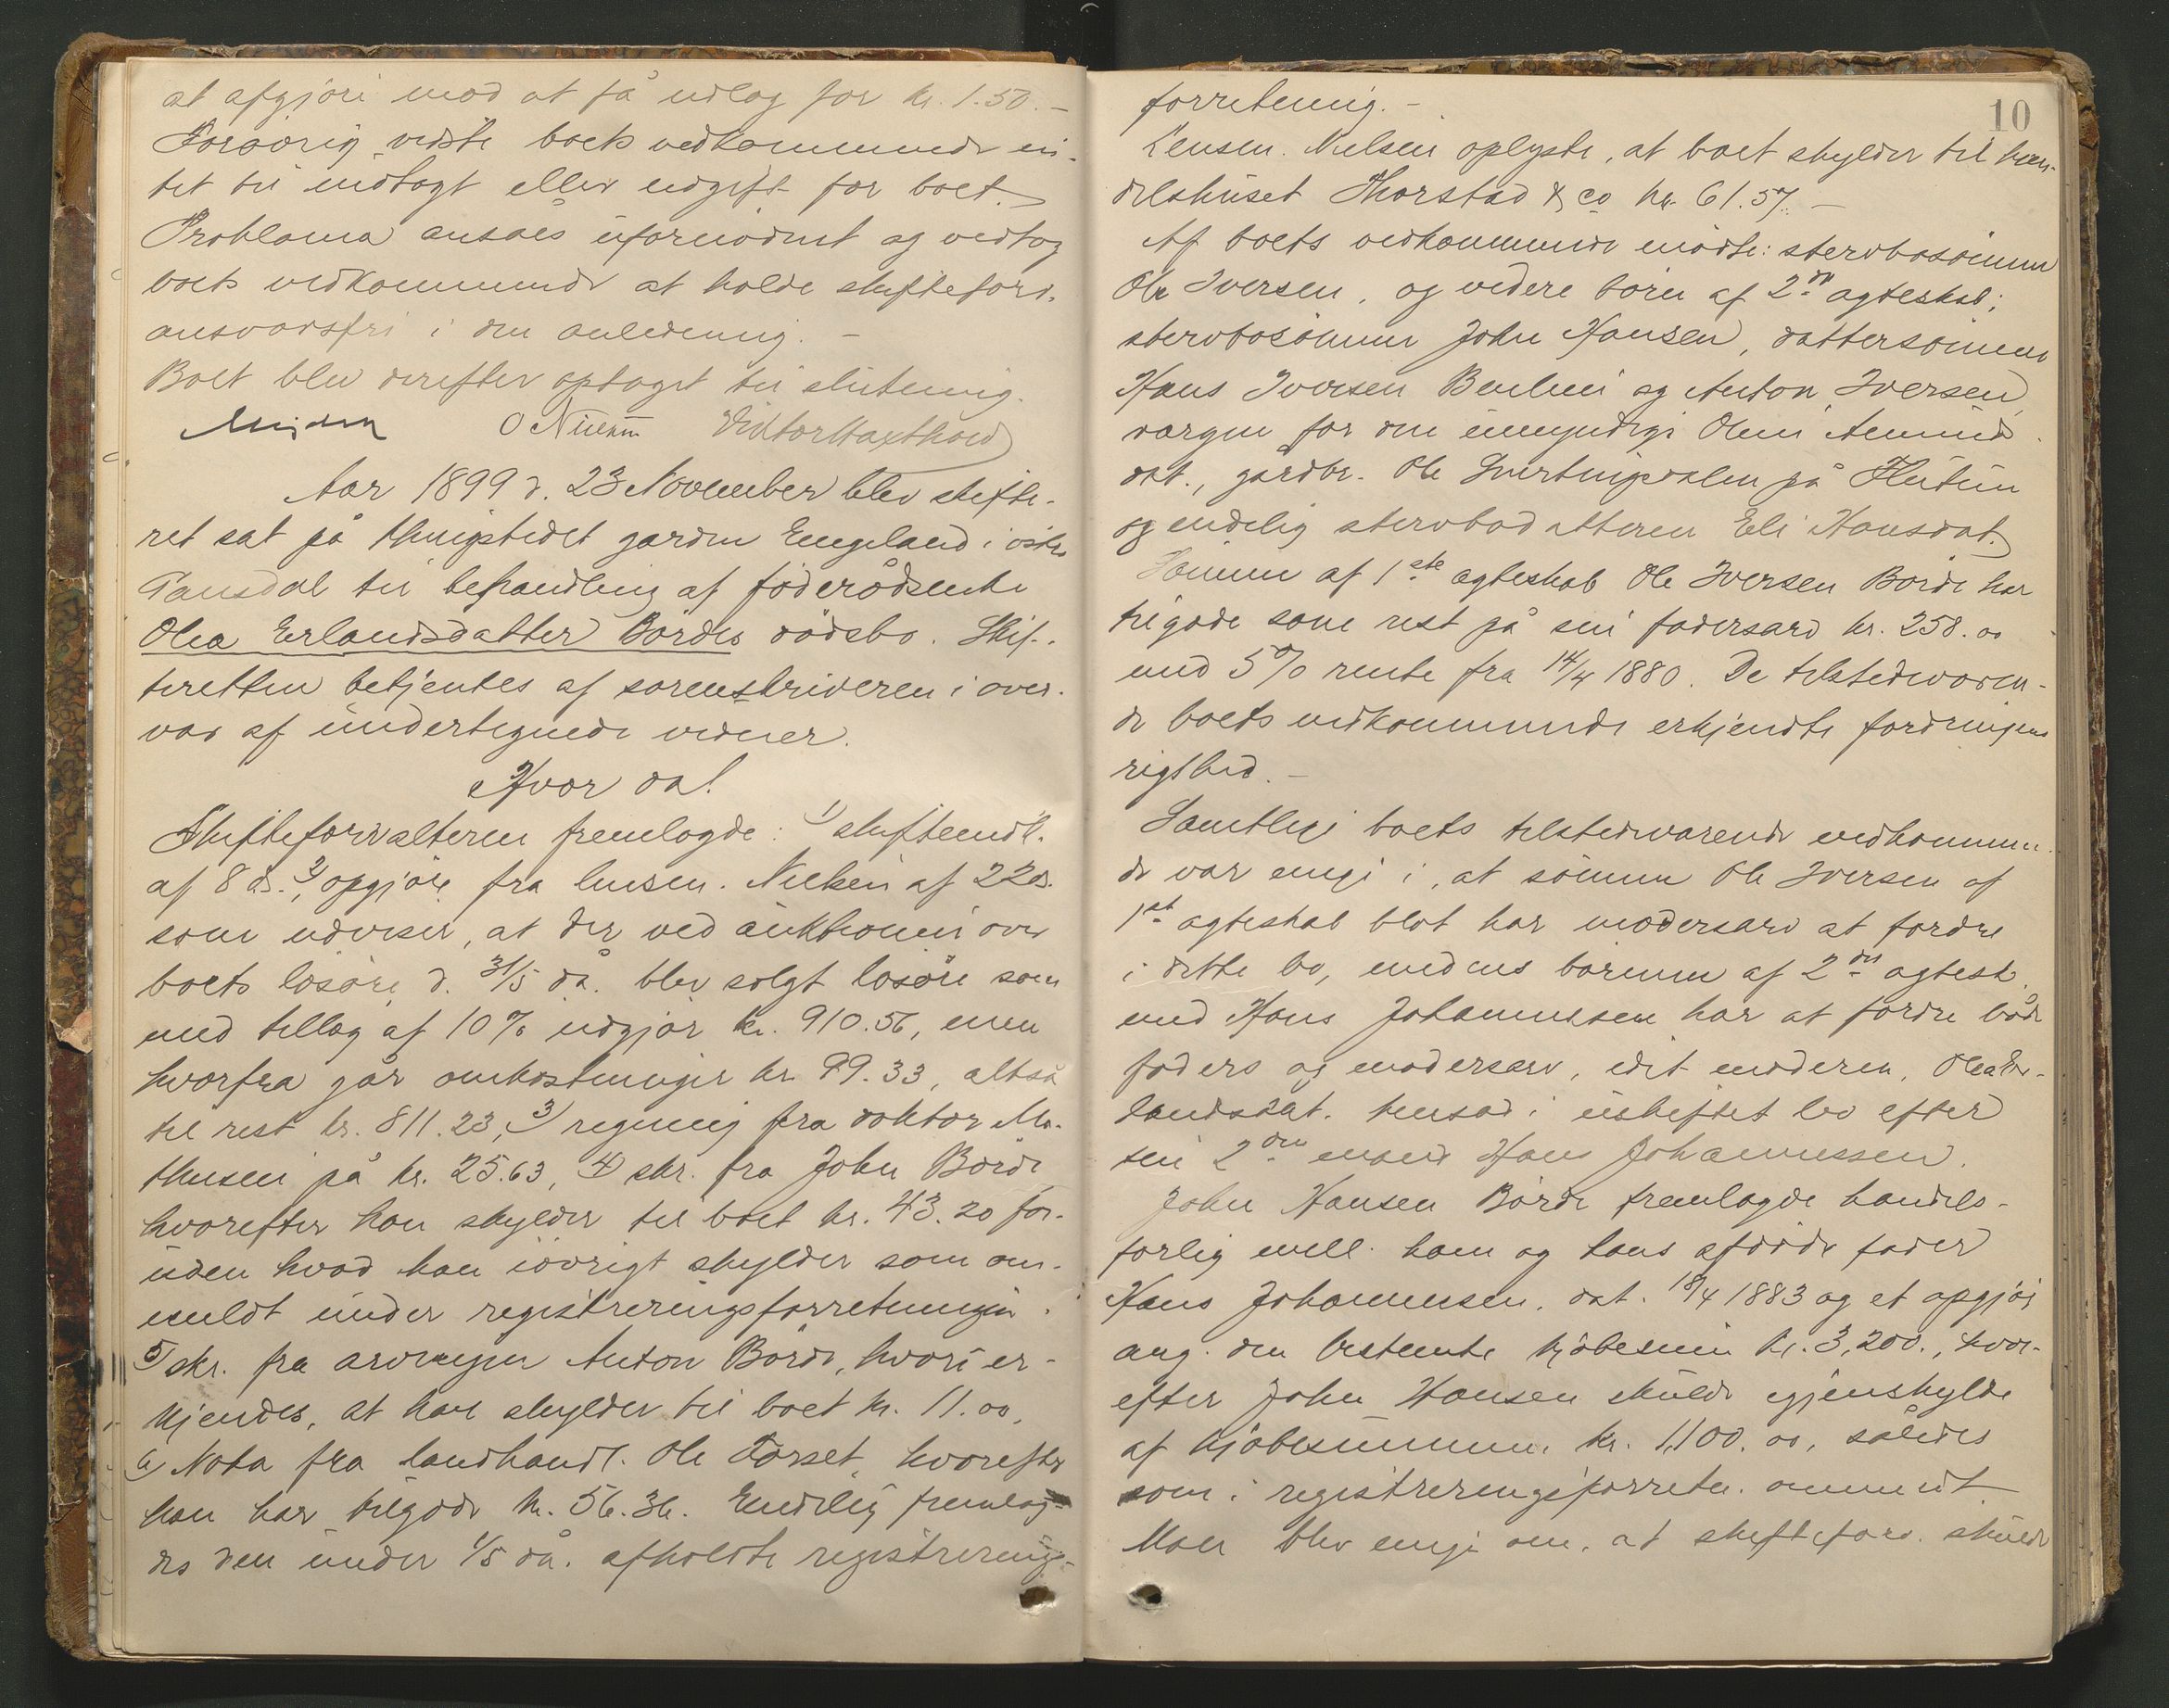 at afgjøre mod at få udlag for kr. 1.50. –
Forøvrig vidste boets vedkommende in-
tet til indtægt eller udgift for boet.
Proklama ansåes ufornødent og vedtog
boets vedkommende at holde skifteforv.
ansvarsfri i den anledning. –
Boet blev derefter optaget til slutning.
O Nilsen Viktor
Aar 1899 d. 23 November blev skifte-
ret sat på thingstedet gården Engeland i østre
Gausdal til behandling af føderådsenke
Olea Erlandsdatter Børdes dødsbo. Skif-
teretten betjentes af sorenskriveren i over-
vær af undertegnede vidner.
Hvor da!
Skifteforvalteren fremlagde: 1) skifteindk.
af 8 ds. 2) opgjør fra lensm. Nielsen af 22 ds.
som udviser, at der ved auktionen over
boets løsøre d. 31/5 då. blev solgt løsøre som
med tillæg af 10% udgjør kr. 910.56, men
hvorfra går omkostninger kr. 99.33, altså
til rest kr. 811.23, 3) regning fra doktor Ma-
thesen på kr. 25.63, 4) skr. fra John Børde
hvorefter han skylder til boet kr. 43.20 for-
uden hvad han iøvrigt skylder som an-
meldt under registreringsforretningen.
5) skr. fra arvingen Anton Børde, hvori er-
kjendes, at han skylder til boet kr. 11.00,
6) Nota fra landhandl. Ole Forset, hvorefter
han har tilgode kr. 56.36. Endelig fremlag-
des den under 1/5 då. afholdte registrerings-
10
forretning. –
Lensm. Nielsen oplyste, at boet skylder til han-
delshuset Thorstad & co kr. 61.57. –
Af boets vedkommende mødte: stervbosønnen
Ole Iversen, og videre børn af 2det ægteskab;
stervbosønnen John Hansen, dattersønnene
Hans Iversen og Anton Iversen,
værgen for den umyndige Oline Amunds-
dat., gårdbr. Ole på
og endelig stervbodatteren Eli Hansdat.
Sønnen af 1ste ægteskab Ole Iversen Børde har
tilgode som rest på sin fadersarv kr. 258.00
med 5% rente fra 14/4 1880. De tilstedeværen-
de boets vedkommende erkjendte fordringens
rigthed. –
Samtlige boets tilstedeværende vedkommen-
de var enige i, at sønnen Ole Iversen af
1ste ægteskab blot har modersarv at fordre
i dette bo, medens børnene af 2det ægtesk.
med Hans Johannessen har at fordre både
faders og modersarv, idet moderen, Olea Er-
landsdat. hensad i uskiftet bo efter
sin 2den mand Hans Johannessen.
John Hansen Børde fremlagde handels-
forlig mell. ham og hans afdøde fader
Hans Johannessen, dat. 18/4 1883 og et opgjør
ang. den bestemte kjøbesum kr. 3,200., hvor-
efter John Hansen skulde igjenskylde
af kjøbesummen kr. 1,100.00, således
som i registreringsforretn. anmeldt.
Man blev enige om, at skifteforv. skulde